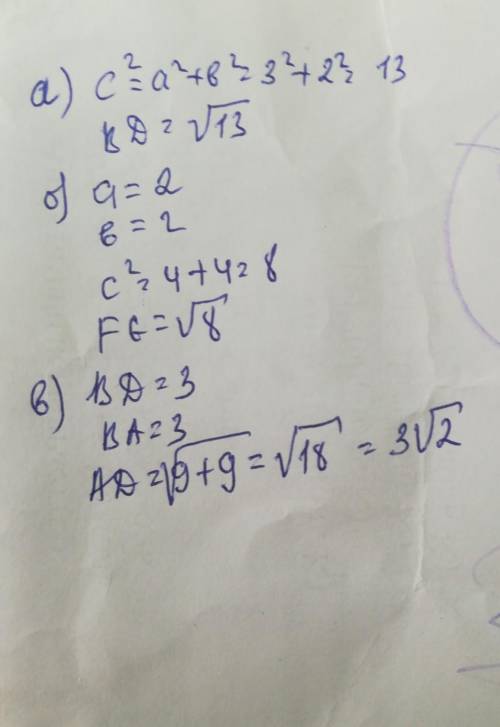 а) c² = a² + в² = 3² + 2² = 13
BD = √13
б) a = 2
в = 2
c² = 4 + 4 = 8
FE = √8
в) BD = 3
BA = 3
AD = √9+9 = √18 = 3√2